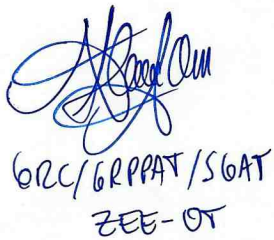 GRC/GRPPAT/SGAT
ZEE-OT